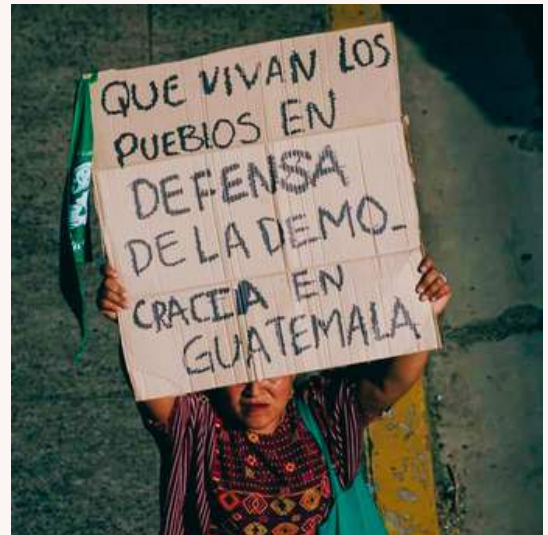 QUE VIVAN LOS
PUEBLOS EN
DEFENSA
DE LA DEMO_
CRACIA EN
GUATEMALA